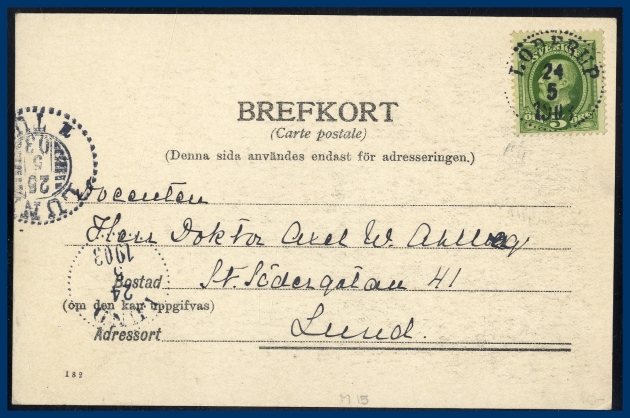 SVERIGE
LÖDERUP
24
5
190
BREFKORT
(Carte postale)
(Denna sida användes endast för adresseringen.)
LUND
25
5
03
Docenten
Herr Doktor Axel W. Ahlberg
1903
5
24
LUND
Bostad St. Södergatan 41
(om den kan uppgifvas)
Adressort Lund.
182
M 15